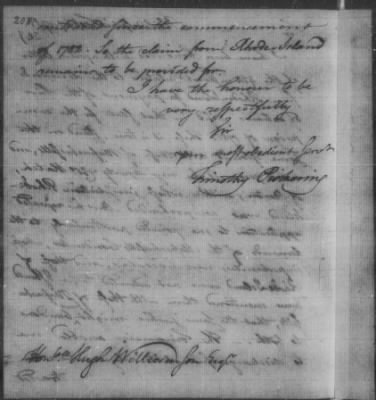 208
contracted since the commencement
of 1782. So the claim from Rhode Island
remains to be provided for.
I have the honour to be
very respectfully
Sir
your most obedient Servt
Timothy Pickering
Honble Hugh Williamson Esqr.